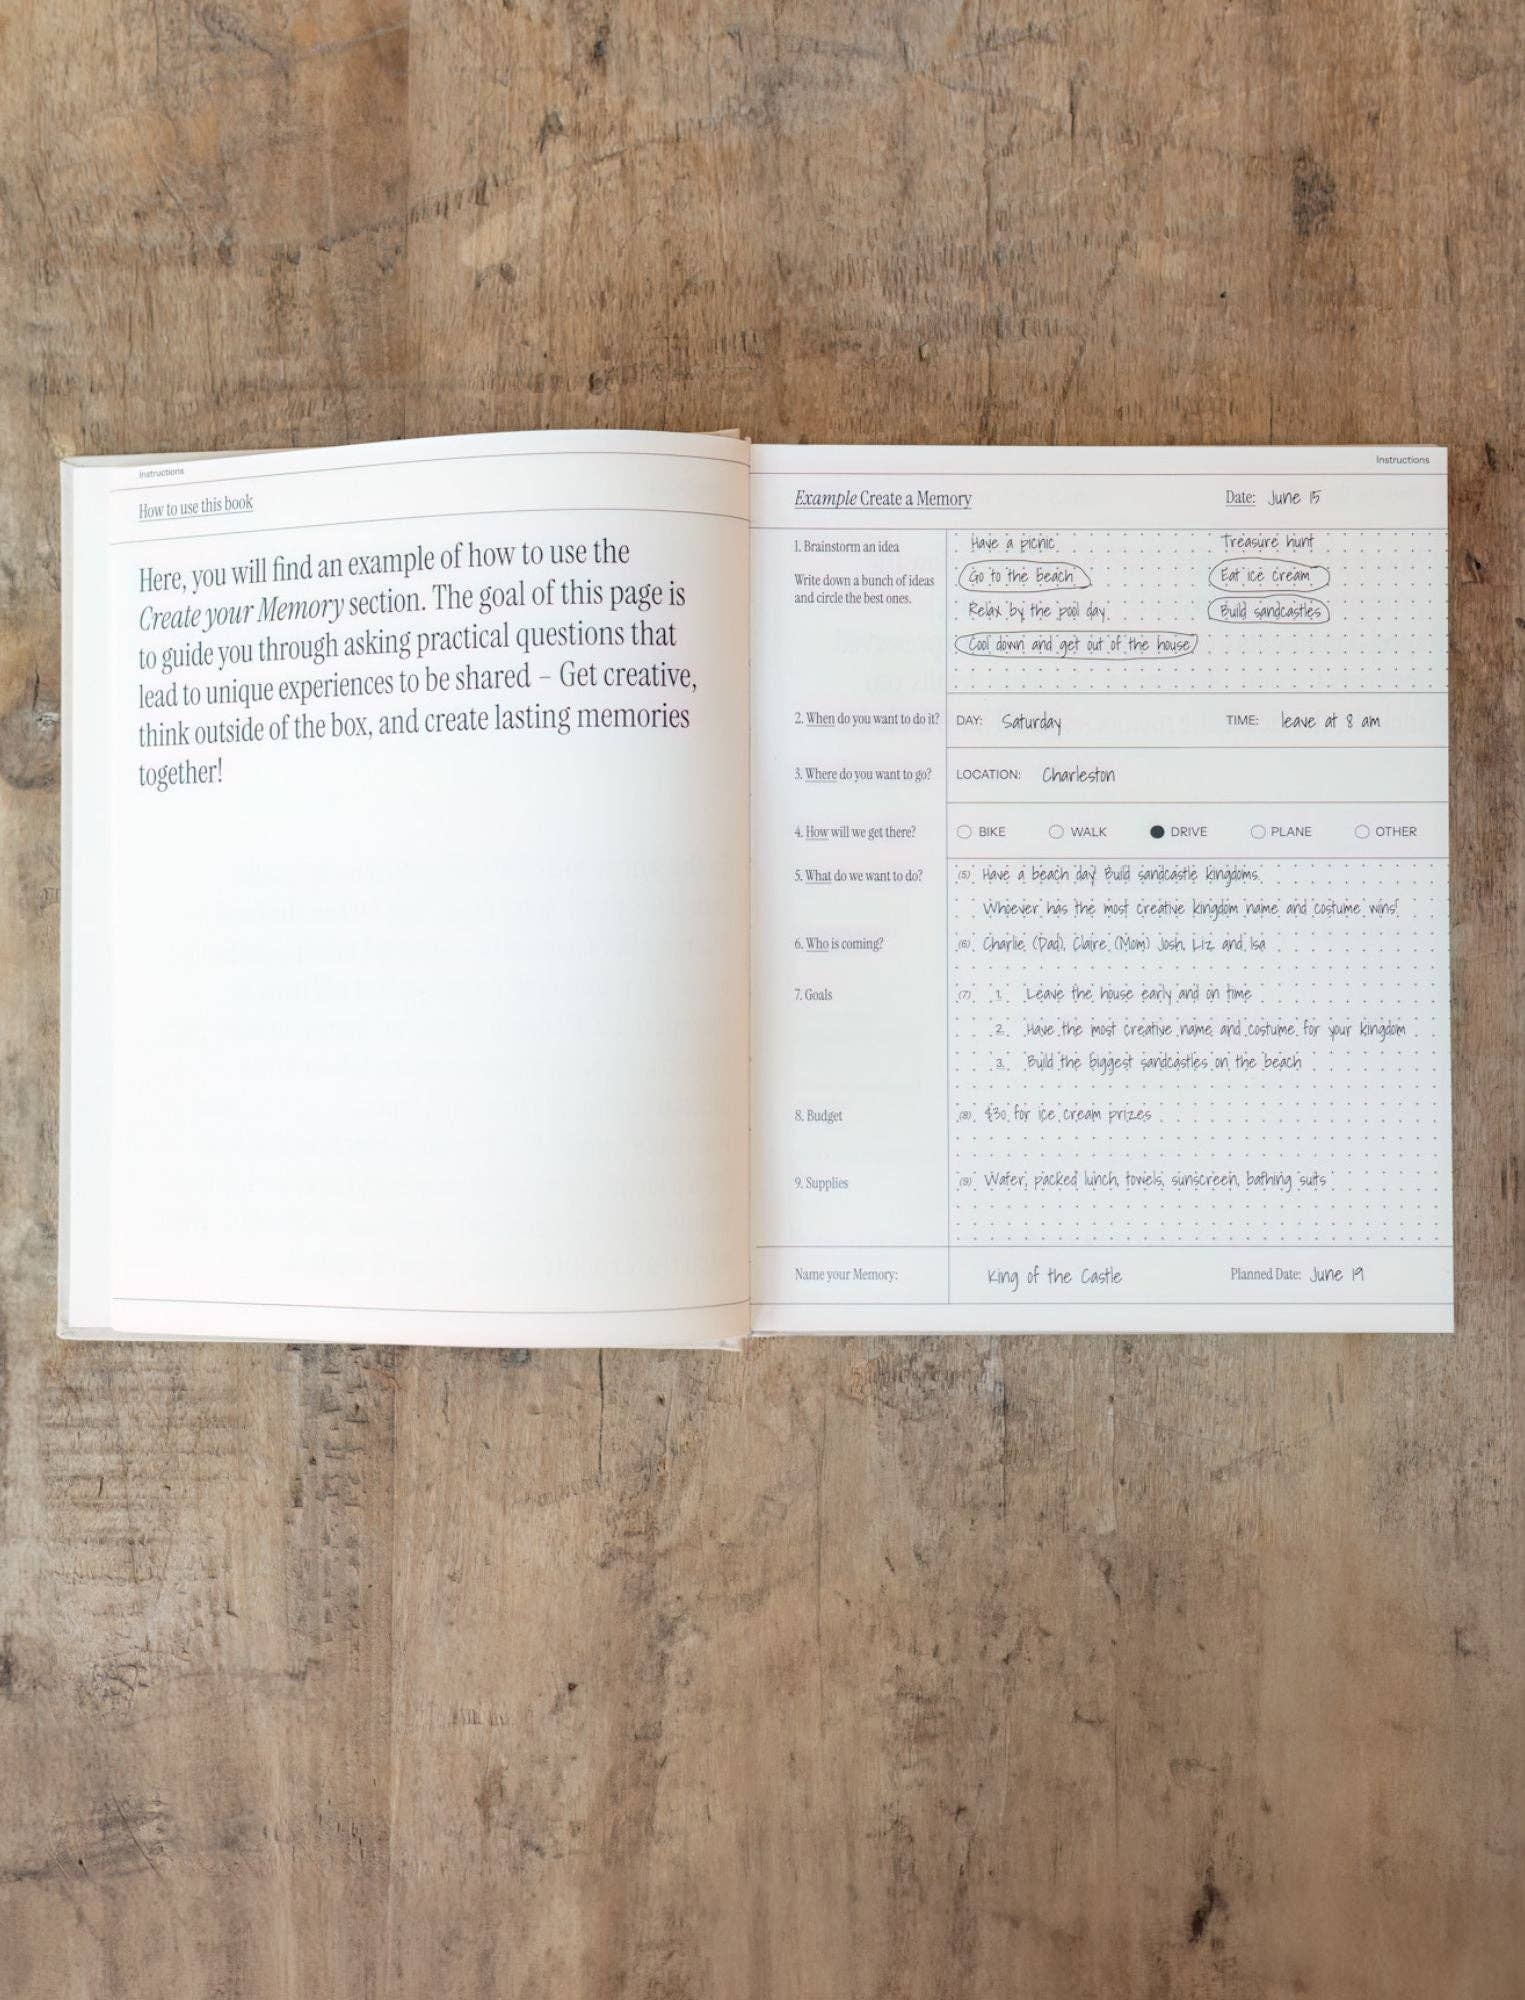 Instructions
How to use this book
Here, you will find an example of how to use the
Create your Memory section. The goal of this page is
to guide you through asking practical questions that
lead to unique experiences to be shared – Get creative,
think outside of the box, and create lasting memories
together!
Instructions
Example Create a Memory
Date: June 15
1. Brainstorm an idea
Write down a bunch of ideas
and circle the best ones.
Have a picnic
Treasure hunt
Go to the beach
Eat ice cream
Relax by the pool day
Build sandcastles
Cool down and get out of the house
2. When do you want to do it?
DAY: Saturday
TIME: leave at 8 am
3. Where do you want to go?
LOCATION: Charleston
4. How will we get there?
BIKE WALK DRIVE PLANE OTHER
5. What do we want to do?
(5) Have a beach day! Build sandcastle kingdoms.
Whoever has the most creative kingdom name and costume wins!
6. Who is coming?
(6) Charlie (Dad), Claire (Mom) Josh, Liz and Isa
7. Goals
(7) 1. Leave the house early and on time
2. Have the most creative name and costume for your kingdom
3. Build the biggest sandcastles on the beach
8. Budget
(8) $30 for ice cream prizes
9. Supplies
(9) Water, packed lunch, towels, sunscreen, bathing suits
Name your Memory: King of the Castle
Planned Date: June 19